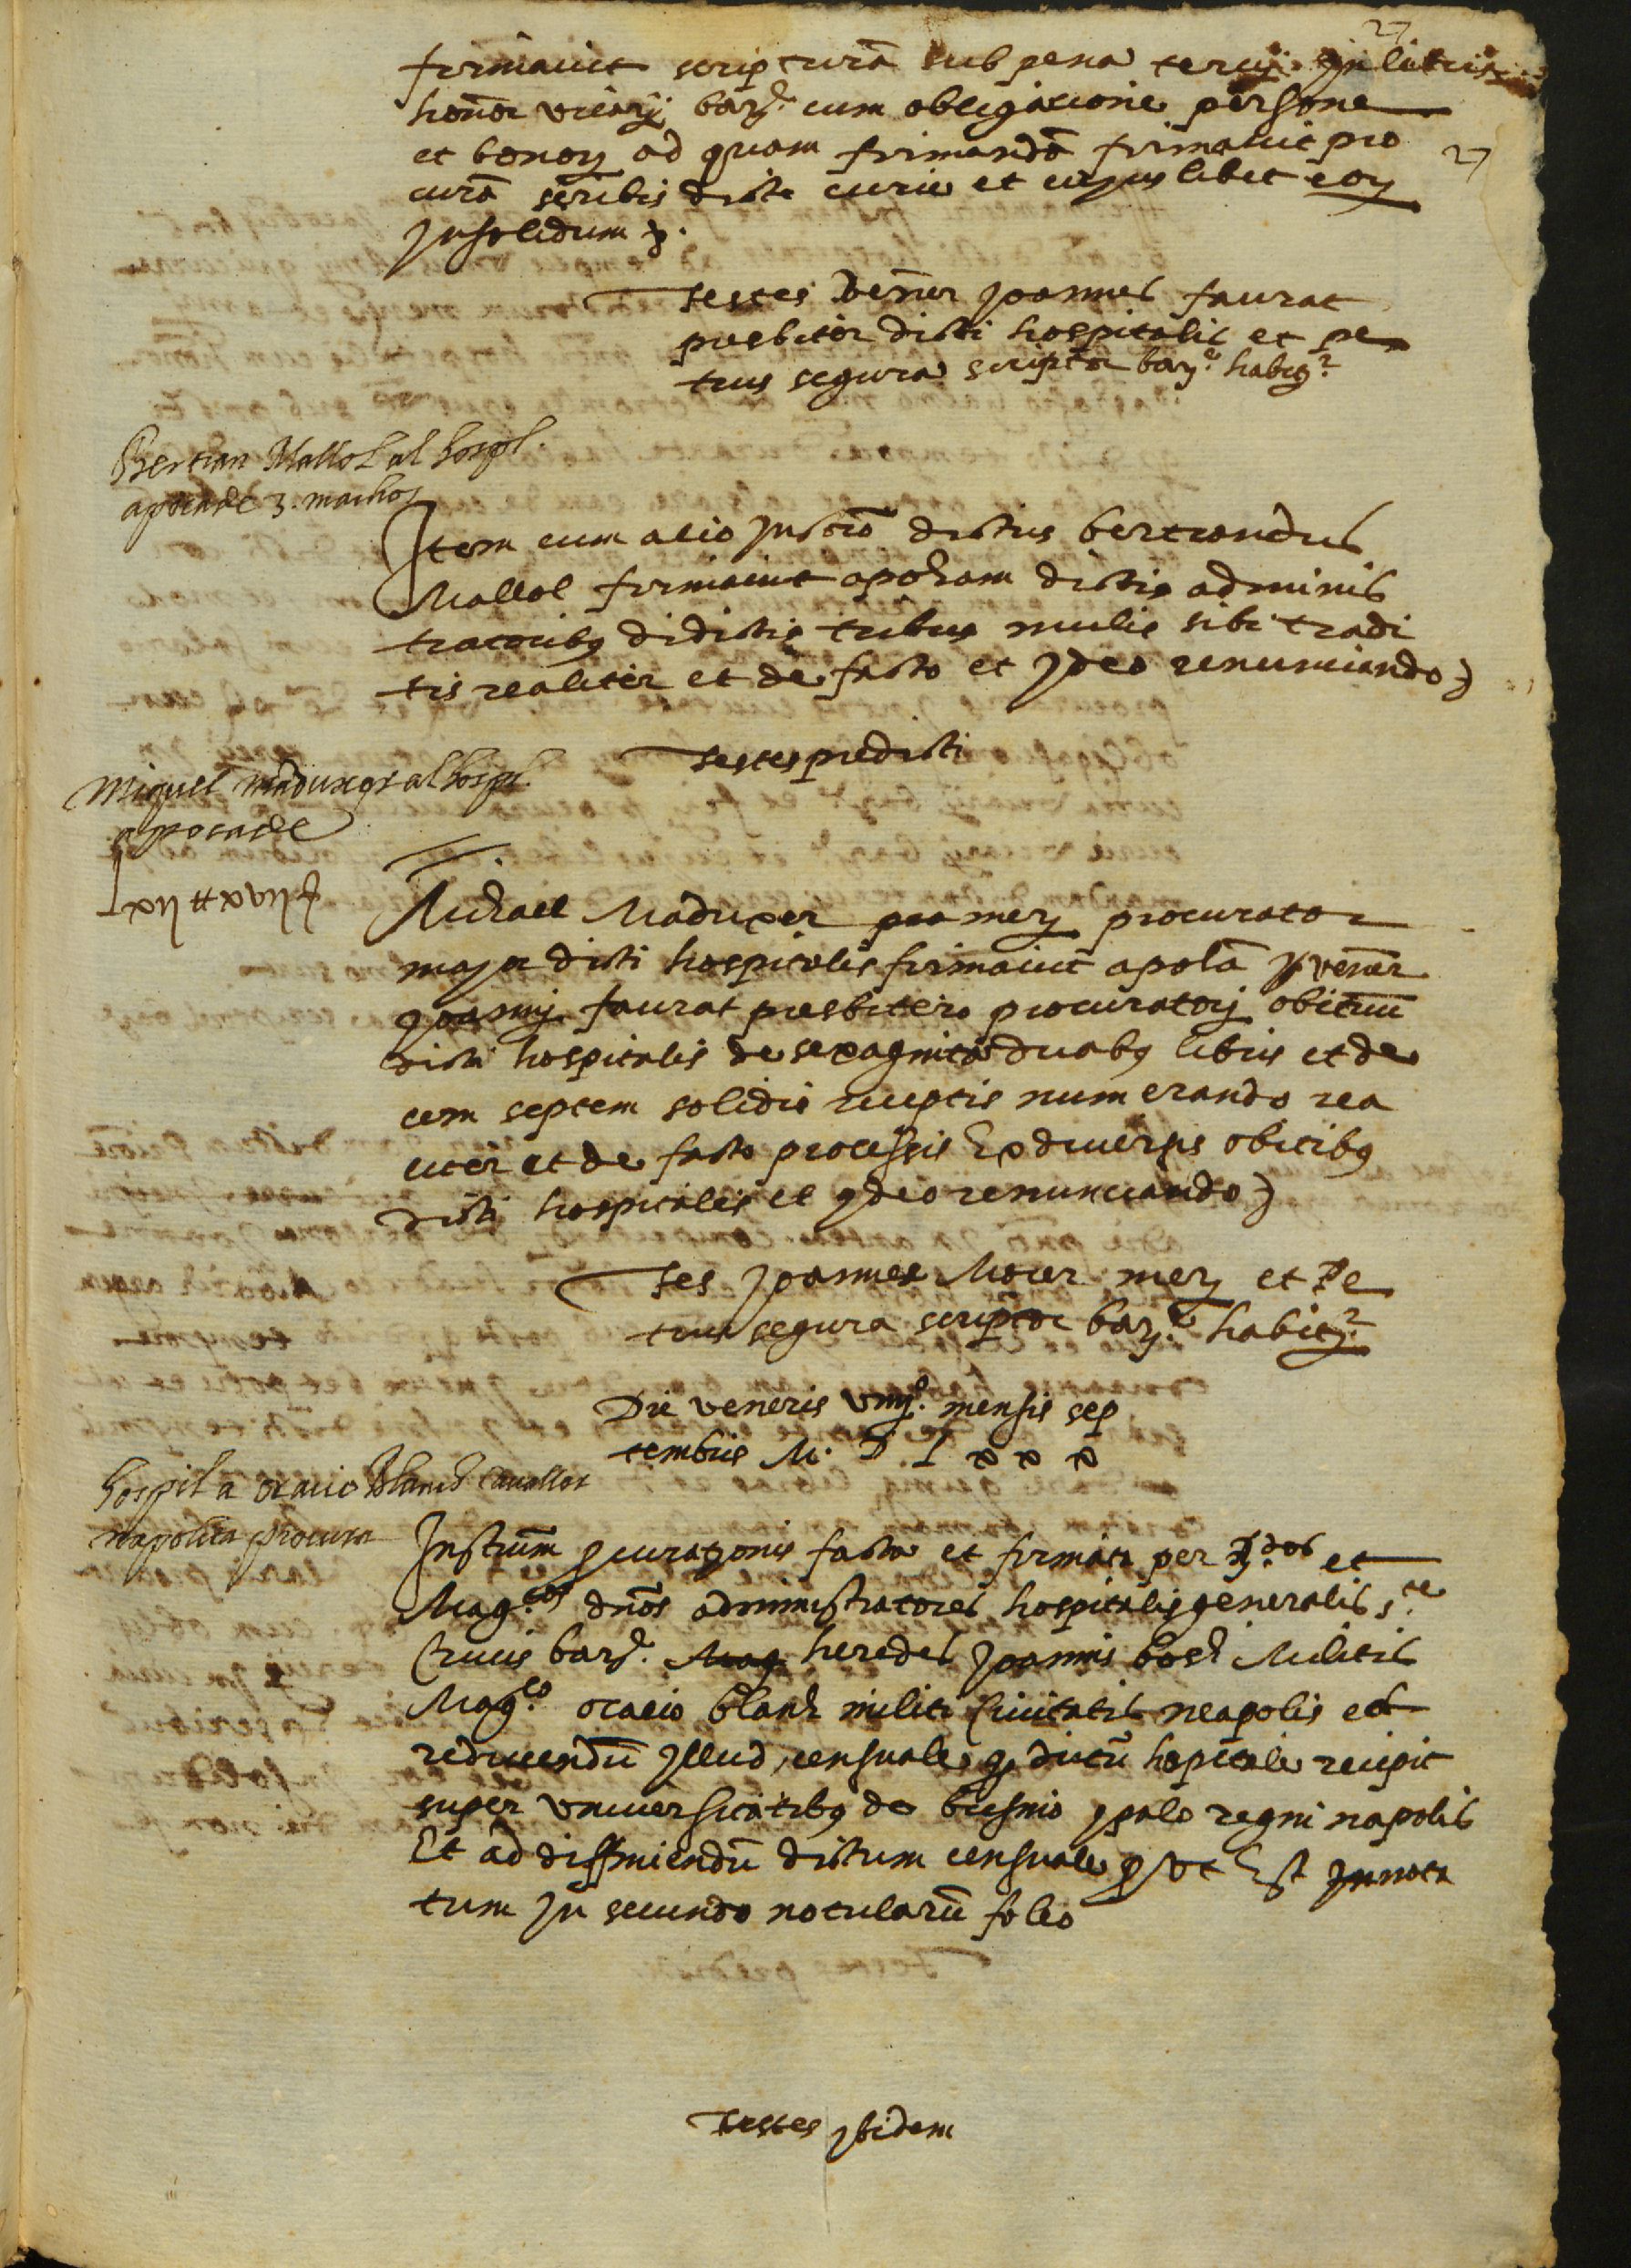 27
firmavit scripturā sub pena tercij in libris
honor vicarij barᵉ. cum obligacione persone
et bonoꝝ ad quam firmandā firmavit pro
27
curā scribis dicte curie et cujus libet eoꝝ
Jnsolidum ꝫ.
Testes Vener Joannes faurat
presbiter dicti hospitalis et pe
trus segura scriptor barᵉ. habitꝫ.
Bertran Mallol al hospl.
apocha de 3. machos
Item cum alio Jnstrō dictus bertrandus
Mallol firmavit apocham dictis adminis
tratoribꝫ didictis tribus mulis sibi tradi
tis realiter et de facto et Jdeo renunciando)
Testes predicti
Miquel maduxer al hospl.
apocade
Lxij ₶ xvij ß
Michael Maduxer merꝫ procurator
major dicti hospitalis firmavit apocā venēr
Joanni faurat presbitero procuratorj obituū
dicti hospitalis de sexaginta duabꝫ libris et de
cem septem solidis receptis numerando rea
liter et de facto processis Ex diversis obitibꝫ
dicti hospitalis et Jdeo renunciando)
Tes Joannes Mover merꝫ et Pe
trus segura scriptor barᵉ. habitꝫ.
Die veneris viiijᵒ. mensis sep
tembris M. D. L x x x
hospital a oracio Blanch cavaller
napolita procura
Instrūm ꝓcurationis facta et firmata per Rᵈᵒˢ et
Magᶜᵒˢ dnōs administratores hospitalis generalis sᵗᵉ
Crucis barᵉ. Mag heredes Joannis bosch Militis
Magᶜᵒ oracio blanch militi Civitatis neapolis ad
reducendū Jllud censuale ꝙ dictū hospitale recipit
super universitatibꝫ de Jpalo regni napolis
Et ad diffiniendū dictum censuale ꝓut Est Jnnota
tum Jn secundo notularū folio
Testes Jbidem